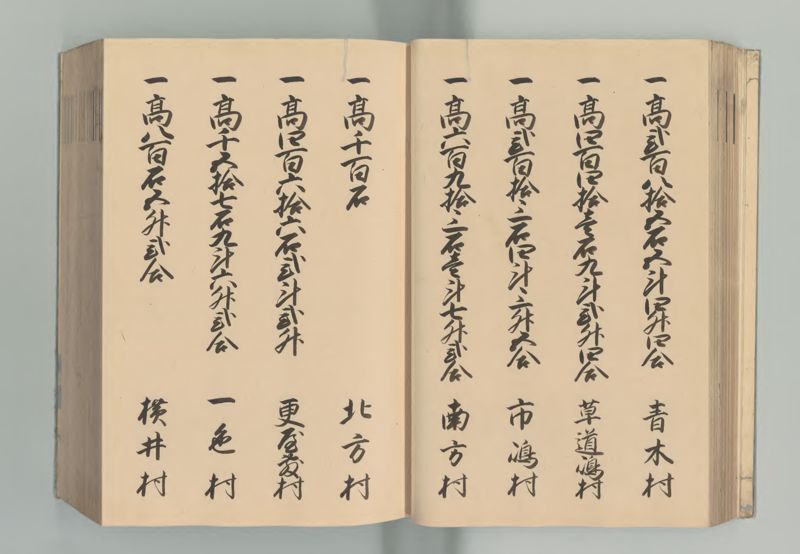 一高弐百八拾五石五斗四升四合 青木村
一高四百四拾壱石九斗弐升四合 草道嶋村
一高弐百拾三石四斗三升五合 市嶋村
一高六百九拾三石壱斗七升弐合 南方村
一高千百石 北方村
一高四百六拾六石弐斗弐升 更屋敷村
一高千五拾七石九斗六升弐合 一色村
一高八百石五升弐合 横井村